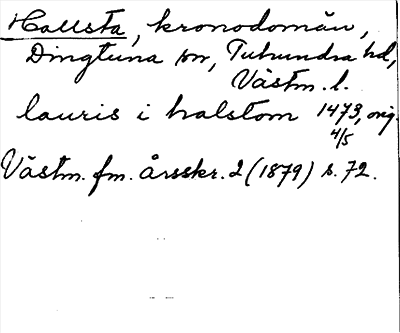 Hallsta, kronodomän,
Dingtuna sn, Tuhundra hd,
Västm. l.
lauris i halstom 1473, orig.
4/5
Västm. fm. årsskr. 2 (1879) s. 72.